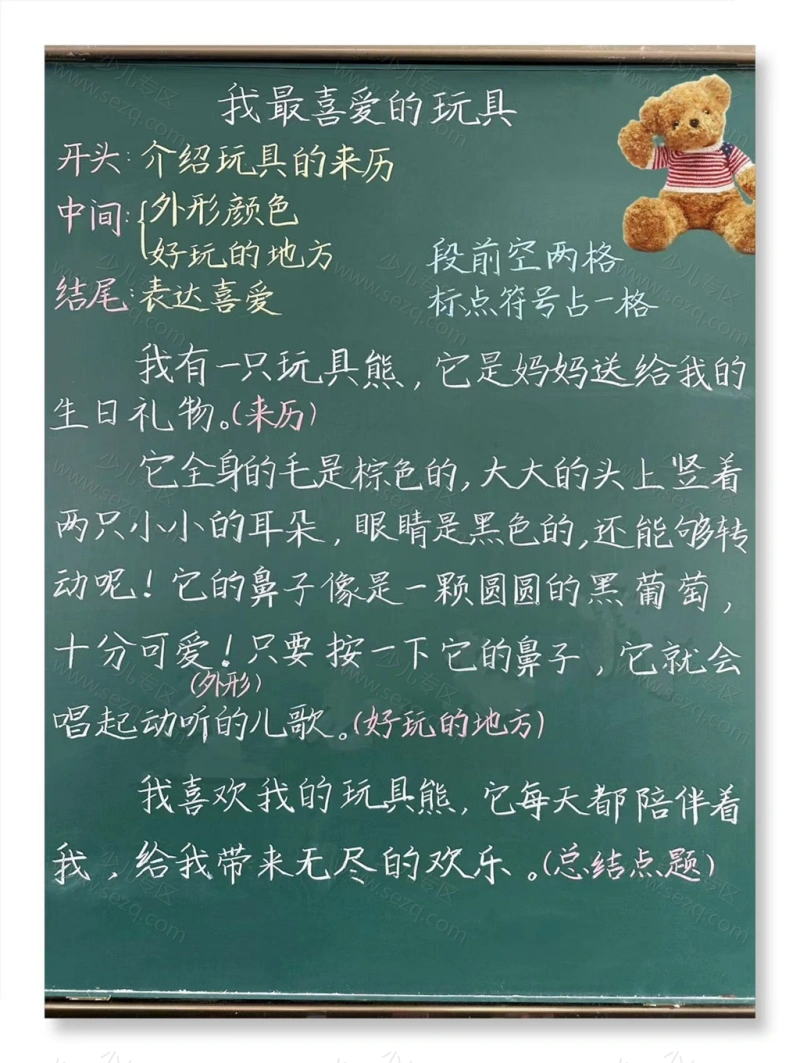 我最喜爱的玩具
开头:介绍玩具的来历
中间:{外形颜色
好玩的地方
段前空两格
结尾:表达喜爱
标点符号占一格
我有一只玩具熊，它是妈妈送给我的
生日礼物。(来历)
它全身的毛是棕色的,大大的头上竖着
两只小小的耳朵，眼睛是黑色的,还能够转
动呢！它的鼻子像是一颗圆圆的黑葡萄，
十分可爱！只要按一下它的鼻子，它就会
(外形)
唱起动听的儿歌。(好玩的地方)
我喜欢我的玩具熊，它每天都陪伴着
我，给我带来无尽的欢乐。(总结点题)
少儿专区
www.sezq.com